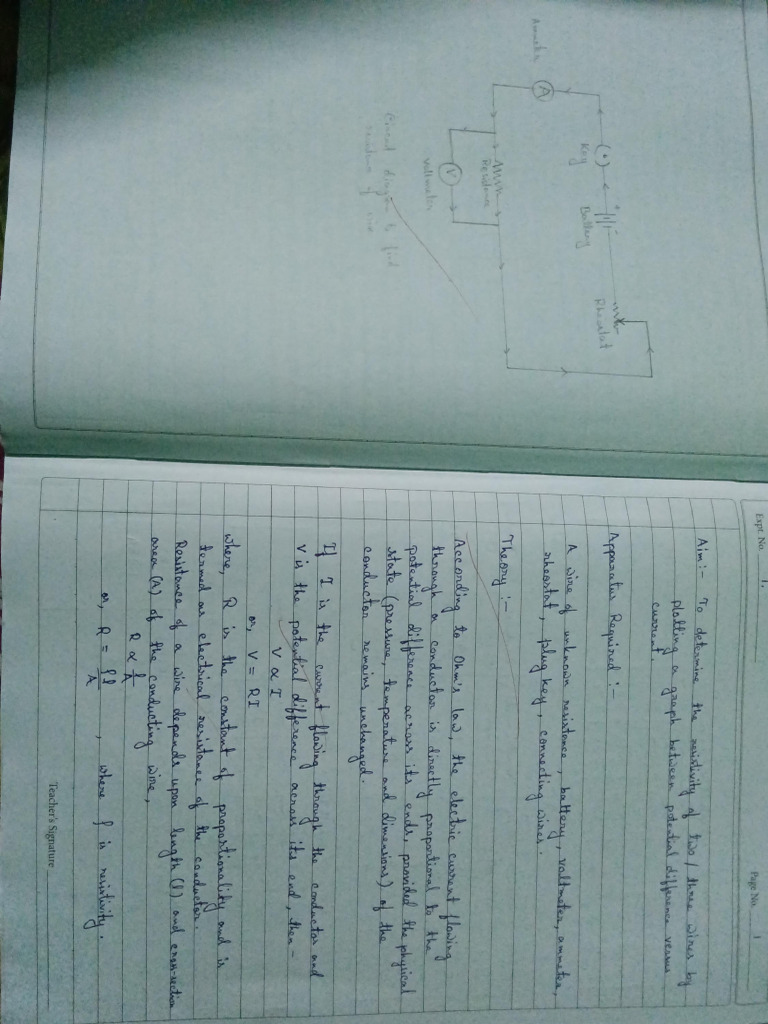 Ammeter
A
Key
Battery
Rheostat
Resistance
V
Voltmeter
Circuit diagram to find
resistance of wire
Expt. No. 1.
Page No. 1
Aim:- To determine the resistivity of two / three wires by
plotting a graph between potential difference versus
current.
Apparatus Required :-
A wire of unknown resistance, battery, voltmeter, ammeter,
rheostat, plug key, connecting wires.
Theory :-
According to Ohm's law, the electric current flowing
through a conductor is directly proportional to the
potential difference across its ends, provided the physical
state (pressure, temperature and dimensions) of the
conductor remains unchanged.
If I is the current flowing through the conductor and
V is the potential difference across its end, then -
V ∝ I
or, V = RI
where, R is the constant of proportionality and is
termed as electrical resistance of the conductor.
Resistance of a wire depends upon length (l) and cross-section
area (A) of the conducting wire,
R ∝ l/A
or, R = ρl/A , where ρ is resistivity.
Teacher's Signature